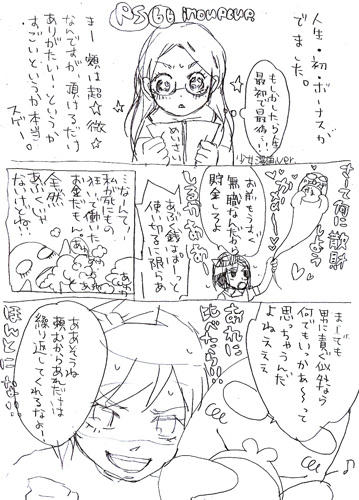 人生・初・ボーナスが
でました。
まー額は超☆微☆
なんですが、頂けるだけ
ありがたい…というか
すごいというか本当
スゲー。
もしかしたら人生
最初で最後…！！
少女漫画ver.
めいさい
さって何に散財
しよう
かなぁー
お前もうすぐ
無職なんだから
貯金しろよ
しるかぁぁ
あぶく銭はぱーっと
使い切るに限らぁ
…なーんて、
私が死にもの
狂いで働いた
お金だもん。
全然
あぶくじゃ
ないけどね。
まーでも
男に貢ぐ以外なら
何でもいっかぁ～って
思っちゃうんだ
よねえええ
あれに
比べたら…!!
ああそうね
頼むからあれだけは
繰り返してくれるなよー
ほんとにな…!!